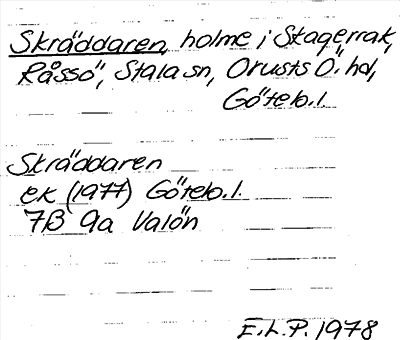 Skräddaren, holme i Stagerrak,
Råssö, Stala sn, Orusts Ö. hd,
Göteb.l.
Skräddaren
ek (1977) Göteb.l.
7B 9a Valön
E.L.P. 1978